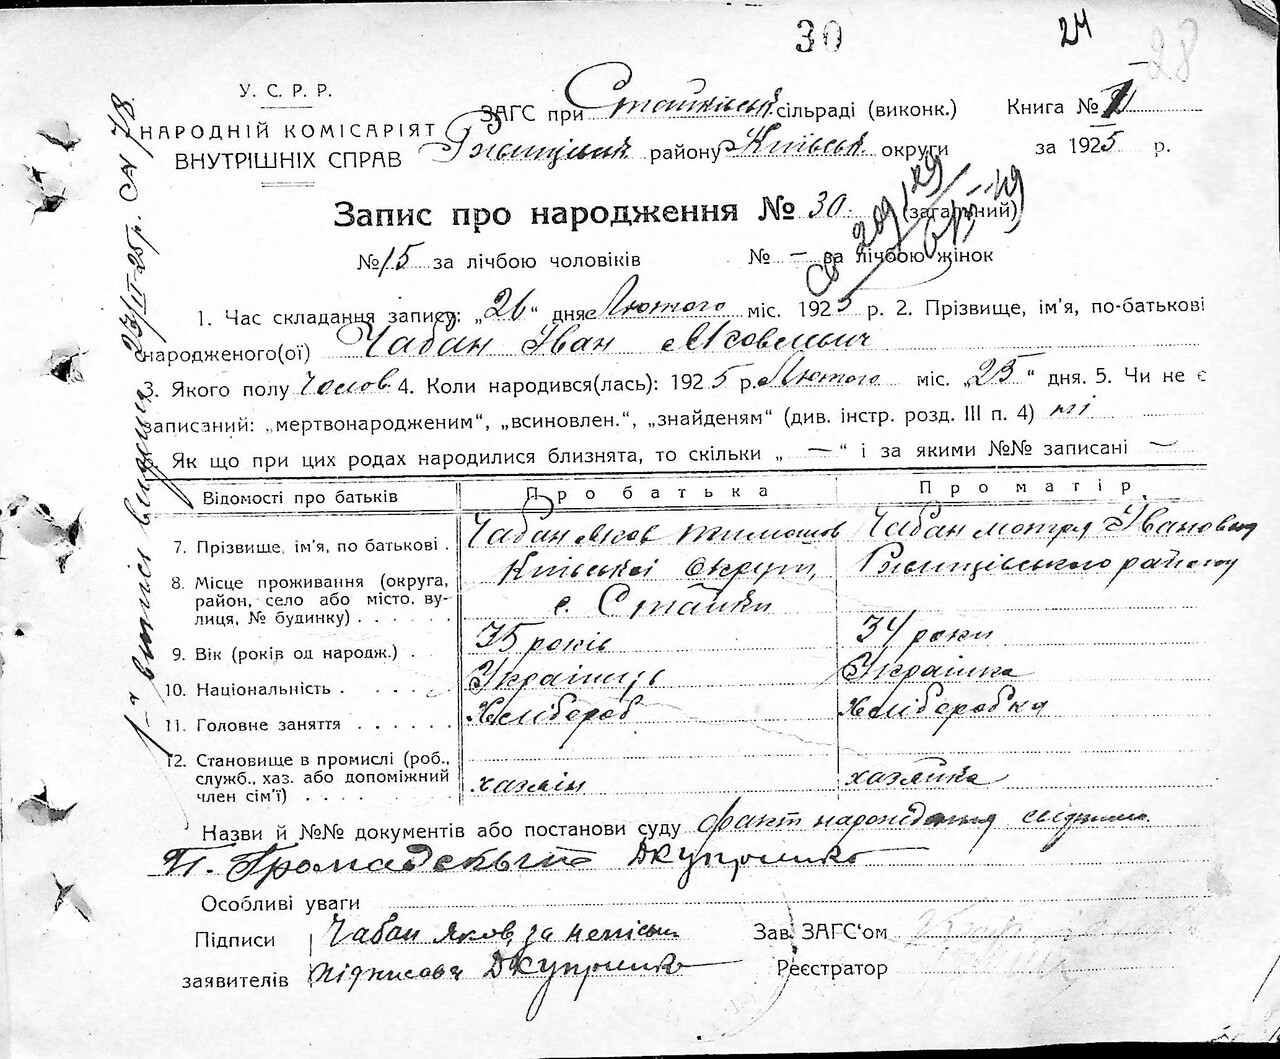 30
24
28
У. С. Р. Р.
НАРОДНІЙ КОМІСАРІЯТ
ВНУТРІШНІХ СПРАВ
ЗАГС при Стайківській сільраді (виконк.)
Книга № 1
району Київськ округи
за 1925 р.
Запис про народження № 30. (загальний)
№ 15 за лічбою чоловіків № — за лічбою жінок
1. Час складання запису: „26“ дня Лютого міс. 1925 р. 2. Прізвище, ім'я, по-батькові
народженого(ої) Чабан Іван Якович
3. Якого полу Чолов 4. Коли народився(лась): 1925 р. Лютого міс. „25“ дня. 5. Чи не є
записаний: „мертвонародженим“, „всиновлен.“, „знайденям“ (див. інстр. розд. III п. 4) ні
Як що при цих родах народилися близнята, то скільки „ — “ і за якими №№ записані —
Відомості про батьків Про батька Про матір
7. Прізвище, ім'я, по батькові . Чабан Яков Тимошов Чабан Мотря Івановна
8. Місце проживання (округа, район, село або місто, вулиця, № будинку) . . . . . . Київської Округи, Ржищівського району
с. Стайки
9. Вік (років од народж.) . 35 років 34 роки
10. Національність . . . . . Українець Українка
11. Головне заняття . . . . . . Хлібороб Хліборобка
12. Становище в промислі (роб., служб., хаз. або допоміжний член сім'ї) . . . . . . . . хазяін хазяйка
Назви й №№ документів або постанови суду факт народження
Особливі уваги
Підписи Чабан Яков, за
заявителів
Зав. ЗАГС'ом
Реєстратор